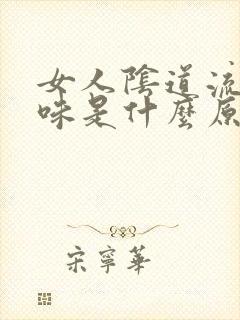 女人陰道流
味是什麼原
宋寧華